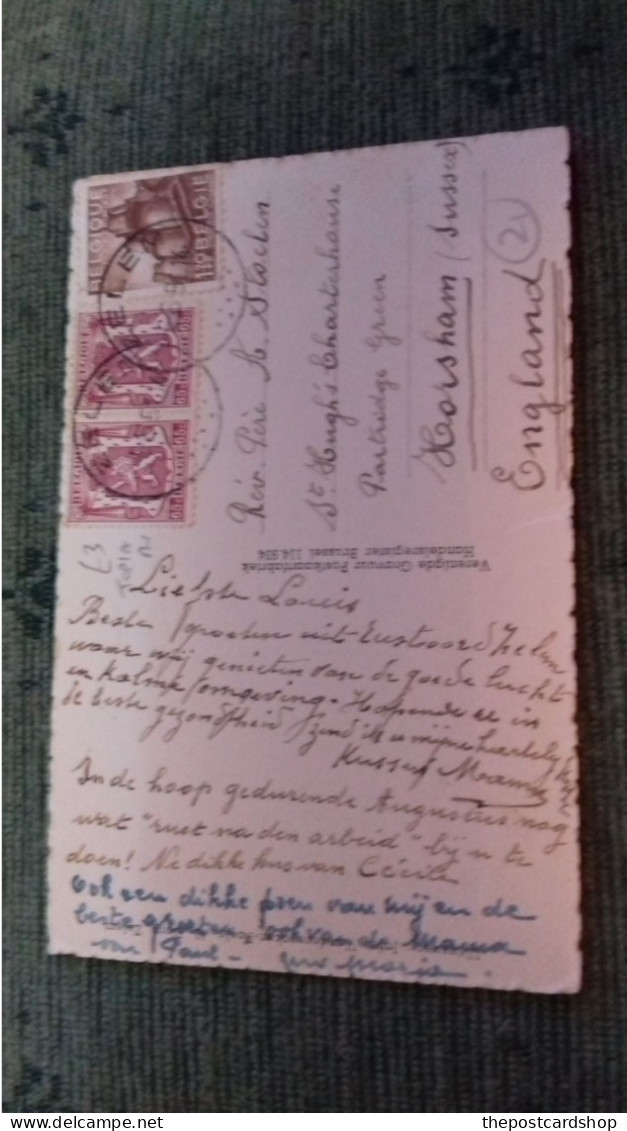 BELGIQUE
1,10 BELGIE
65c
BELGIE
65c
BELGIE
ZELEM
ZELEM
Rév. Père A. Stoelen
St Hugh's Charterhouse
Partridge Green
Horsham (Sussex)
England
2v
£3
Verenigde Gravuur Postkaartfabriek
Handelsregister Brussel 114.934
Liefste Louis
Beste groeten uit Zelem
waar wij genieten van de goede lucht
en kalme omgeving. Hopende u in
de beste gezondheid zend ik u mijne hartelijke
kussen Mama
In de hoop gedurende Augustus nog
wat "rust na den arbeid" bij u te
doen! Ne dikke kus van Cécile
Ook een dikke poen van mij en de
beste groeten ook van de Mama
van Paul - Maria.
thepostcardshop